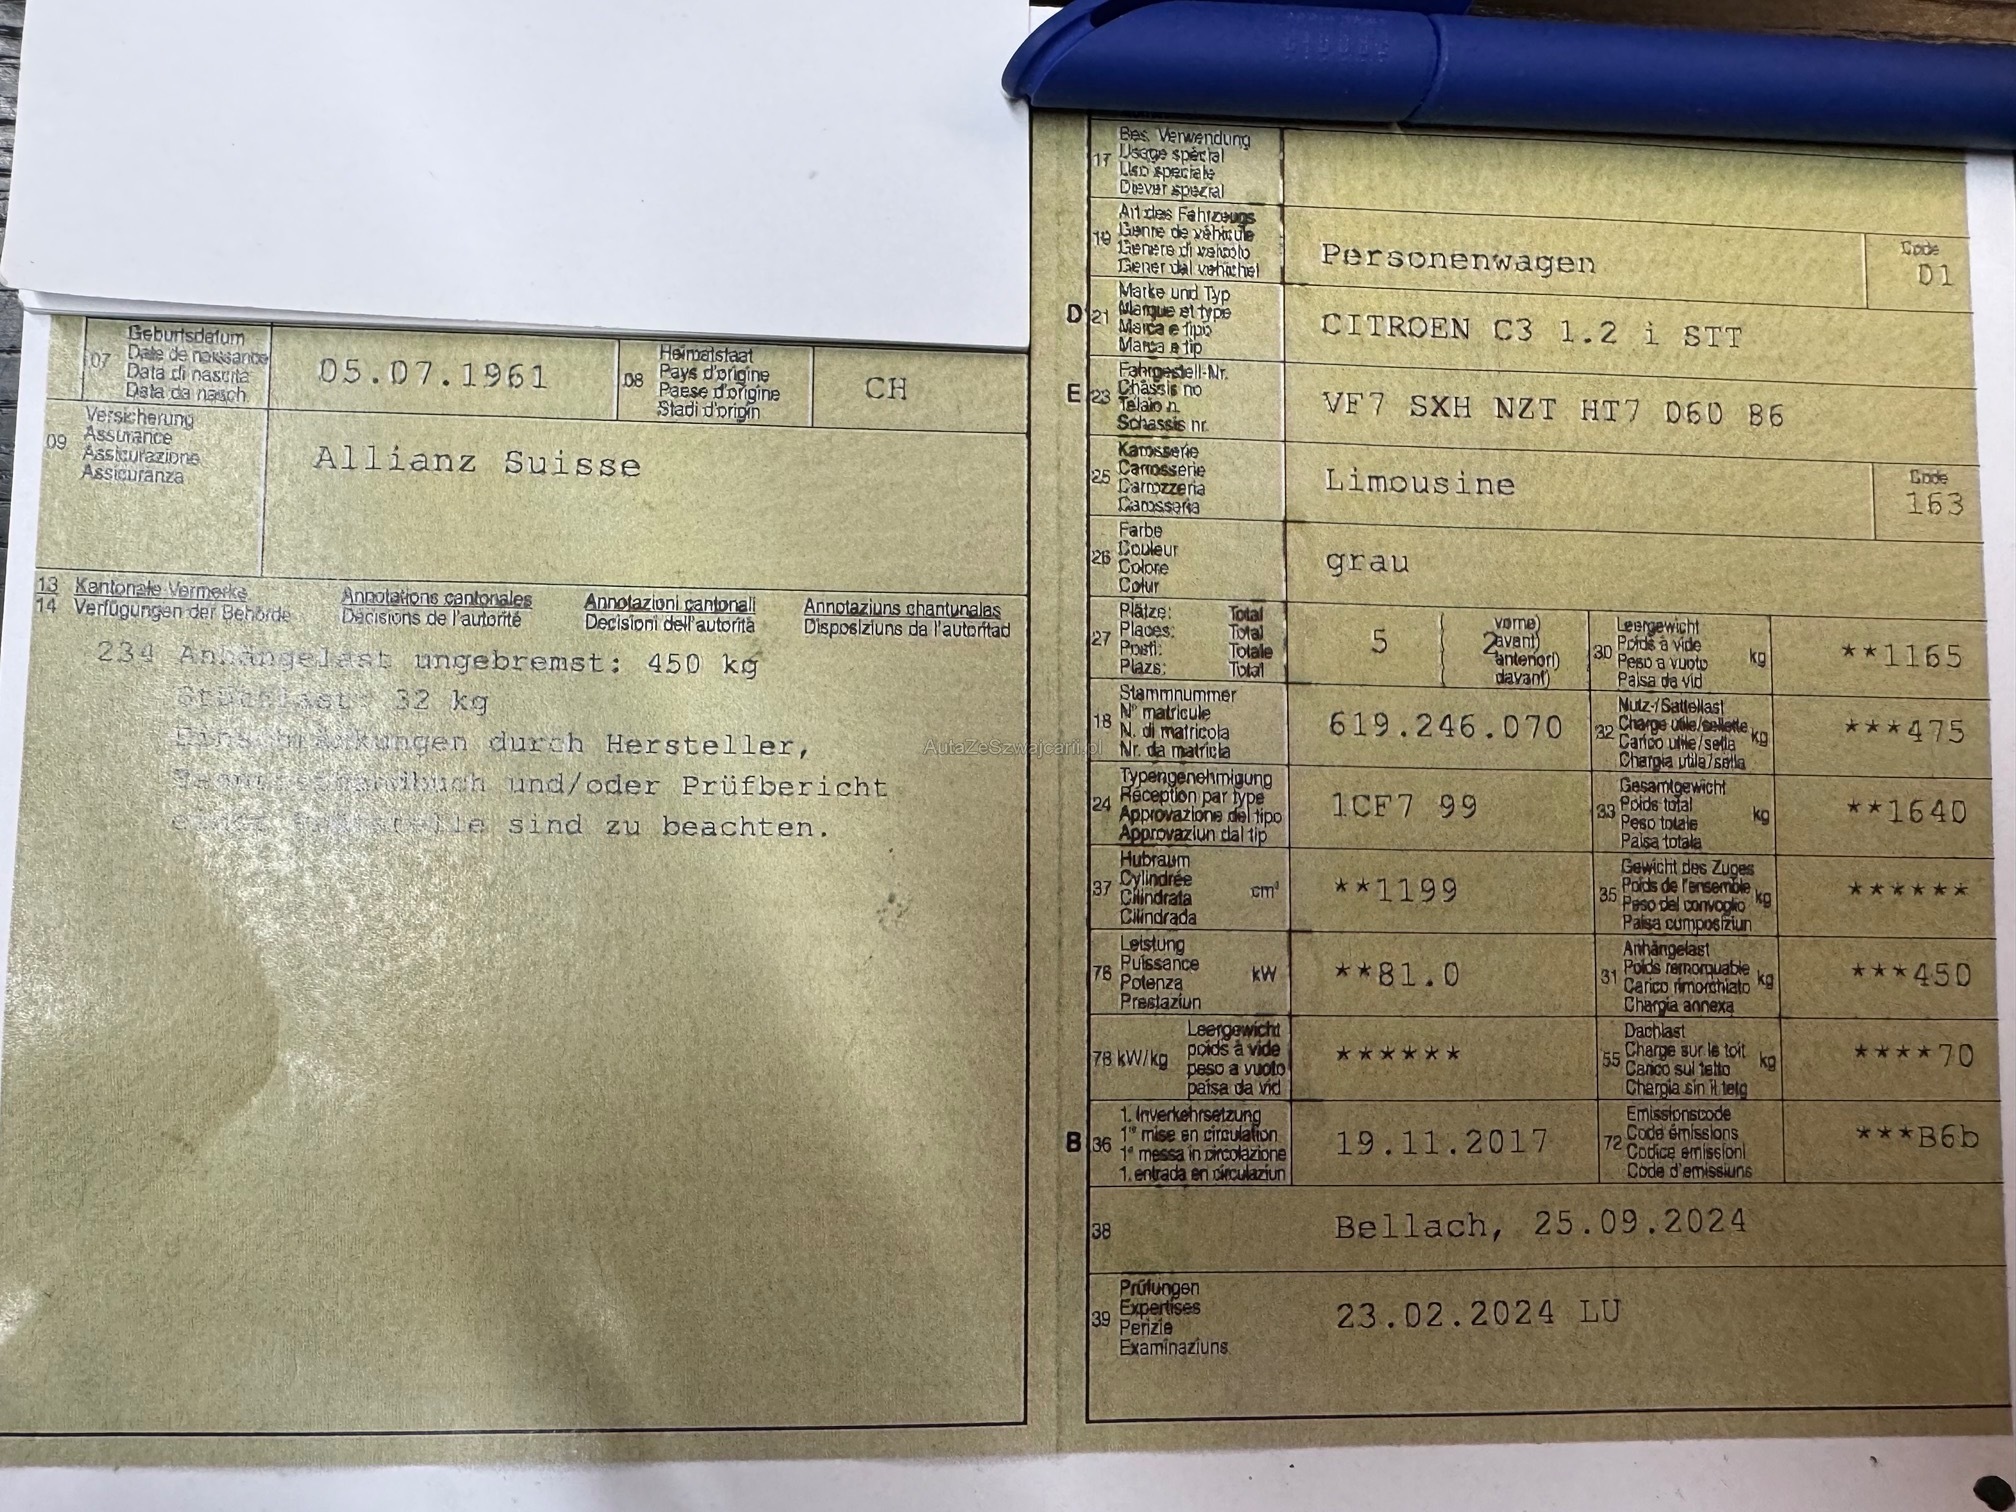 07 Geburtsdatum
Date de naissance
Data di nascita
Data da nasch.
05.07.1961
08 Heimatstaat
Pays d'origine
Paese d'origine
Stadi d'origin
CH
09 Versicherung
Assurance
Assicurazione
Assicuranza
Allianz Suisse
13 Kantonale Vermerke Annotations cantonales Annotazioni cantonali Annotaziuns chantunalas
14 Verfügungen der Behörde Décisions de l'autorité Decisioni dell'autorità Disposiziuns da l'autoritad
234 Anhängelast ungebremst: 450 kg
Stützlast: 32 kg
Einschränkungen durch Hersteller,
und/oder Prüfbericht
sind zu beachten.
17 Bes. Verwendung
Usage spécial
Uso speciale
Diever spezial
19 Art des Fahrzeugs
Genre de véhicule
Genere di veicolo
Gener dal vehichel
Personenwagen
Code
01
D 21 Marke und Typ
Marque et type
Marca e tipo
Marca e tip
CITROEN C3 1.2 i STT
E 23 Fahrgestell-Nr.
Châssis no
Telaio n.
Schassis nr.
VF7 SXH NZT HT7 060 86
25 Karosserie
Carrosserie
Carrozzeria
Carossaria
Limousine
Code
163
26 Farbe
Couleur
Colore
Colur
grau
27 Plätze: Total
Places: Total
Posti: Totale
Plazs: Total
5
2
vorne)
avant)
anteriori)
davant)
30 Leergewicht
Poids à vide
Peso a vuoto kg
Paisa da vid
**1165
18 Stammnummer
N° matricule
N. di matricola
Nr. da matricla
619.246.070
32 Nutz-/Sattellast
Charge utile/sellette kg
Carico utile/sella
Chargia utila/sella
***475
24 Typengenehmigung
Réception par type
Approvazione del tipo
Approvaziun dal tip
1CF7 99
33 Gesamtgewicht
Poids total kg
Peso totale
Paisa totala
**1640
37 Hubraum
Cylindrée cm³
Cilindrata
Cilindrada
**1199
35 Gewicht des Zuges
Poids de l'ensemble kg
Peso del convoglio
Paisa cumposiziun
******
76 Leistung
Puissance kW
Potenza
Prestaziun
**81.0
31 Anhängelast
Poids remorquable kg
Carico rimorchiato
Chargia annexa
***450
78 kW/kg Leergewicht
poids à vide
peso a vuoto
paisa da vid
******
55 Dachlast
Charge sur le toit kg
Carico sul tetto
Chargia sin il tetg
****70
B 36 1. Inverkehrsetzung
1re mise en circulation
1a messa in circolazione
1. entrada en circulaziun
19.11.2017
72 Emissionscode
Code émissions
Codice emissioni
Code d'emissiuns
***B6b
38 Bellach, 25.09.2024
39 Prüfungen
Expertises
Perizie
Examinaziuns
23.02.2024 LU
AutaZeSzwajcarii.pl